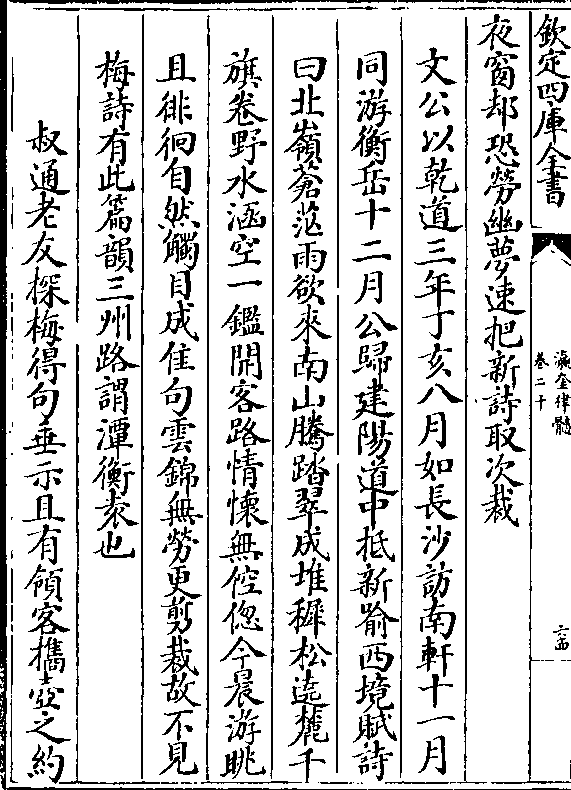 欽定四庫全書
瀛奎律髓
卷二十
夜窗却恐勞幽夢速把新詩取次裁
文公以乾道三年丁亥八月如長沙訪南軒十一月
同游衡岳十二月公歸建陽道中抵新喻西境賦詩
曰北嶺蒼茫雨欲來南山騰踏翠成堆穉松遶麓千
旗卷野水涵空一鑑開客路情懷無倥偬今晨游眺
且徘徊自然觸目成佳句雲錦無勞更剪裁故不見
梅詩有此篇韻三州路謂潭衡袁也
叔通老友探梅得句垂示且有領客攜壺之約